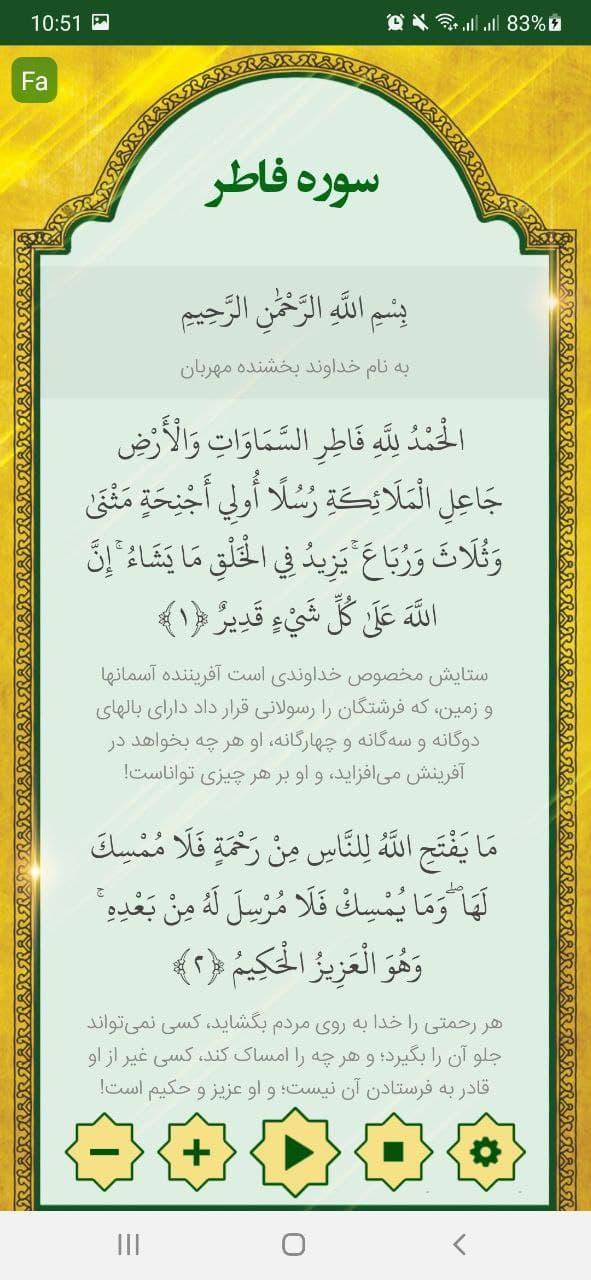 10:51
83%
Fa
سوره فاطر
بِسْمِ اللَّهِ الرَّحْمَٰنِ الرَّحِيمِ
به نام خداوند بخشنده مهربان
الْحَمْدُ لِلَّهِ فَاطِرِ السَّمَاوَاتِ وَالْأَرْضِ
جَاعِلِ الْمَلَائِكَةِ رُسُلًا أُولِي أَجْنِحَةٍ مَثْنَىٰ
وَثُلَاثَ وَرُبَاعَ ۚ يَزِيدُ فِي الْخَلْقِ مَا يَشَاءُ ۚ إِنَّ
اللَّهَ عَلَىٰ كُلِّ شَيْءٍ قَدِيرٌ ﴿١﴾
ستایش مخصوص خداوندی است آفریننده آسمانها
و زمین، که فرشتگان را رسولانی قرار داد دارای بالهای
دوگانه و سه‌گانه و چهارگانه، او هر چه بخواهد در
آفرینش می‌افزاید، و او بر هر چیزی تواناست!
مَا يَفْتَحِ اللَّهُ لِلنَّاسِ مِنْ رَحْمَةٍ فَلَا مُمْسِكَ
لَهَا ۖ وَمَا يُمْسِكْ فَلَا مُرْسِلَ لَهُ مِنْ بَعْدِهِ ۚ
وَهُوَ الْعَزِيزُ الْحَكِيمُ ﴿٢﴾
هر رحمتی را خدا به روی مردم بگشاید، کسی نمی‌تواند
جلو آن را بگیرد؛ و هر چه را امساک کند، کسی غیر از او
قادر به فرستادن آن نیست؛ و او عزیز و حکیم است!